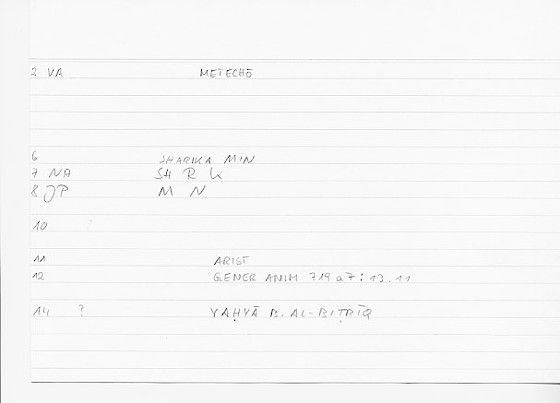 2 VA METECHŌ
6 SHARIKA MIN
7 NA SH R K
8 JP M N
10 ?
11 ARIST
12 GENER ANIM 719 a 7 : 13.11
14 ? YAḤYĀ B. AL-BIṬRĪQ